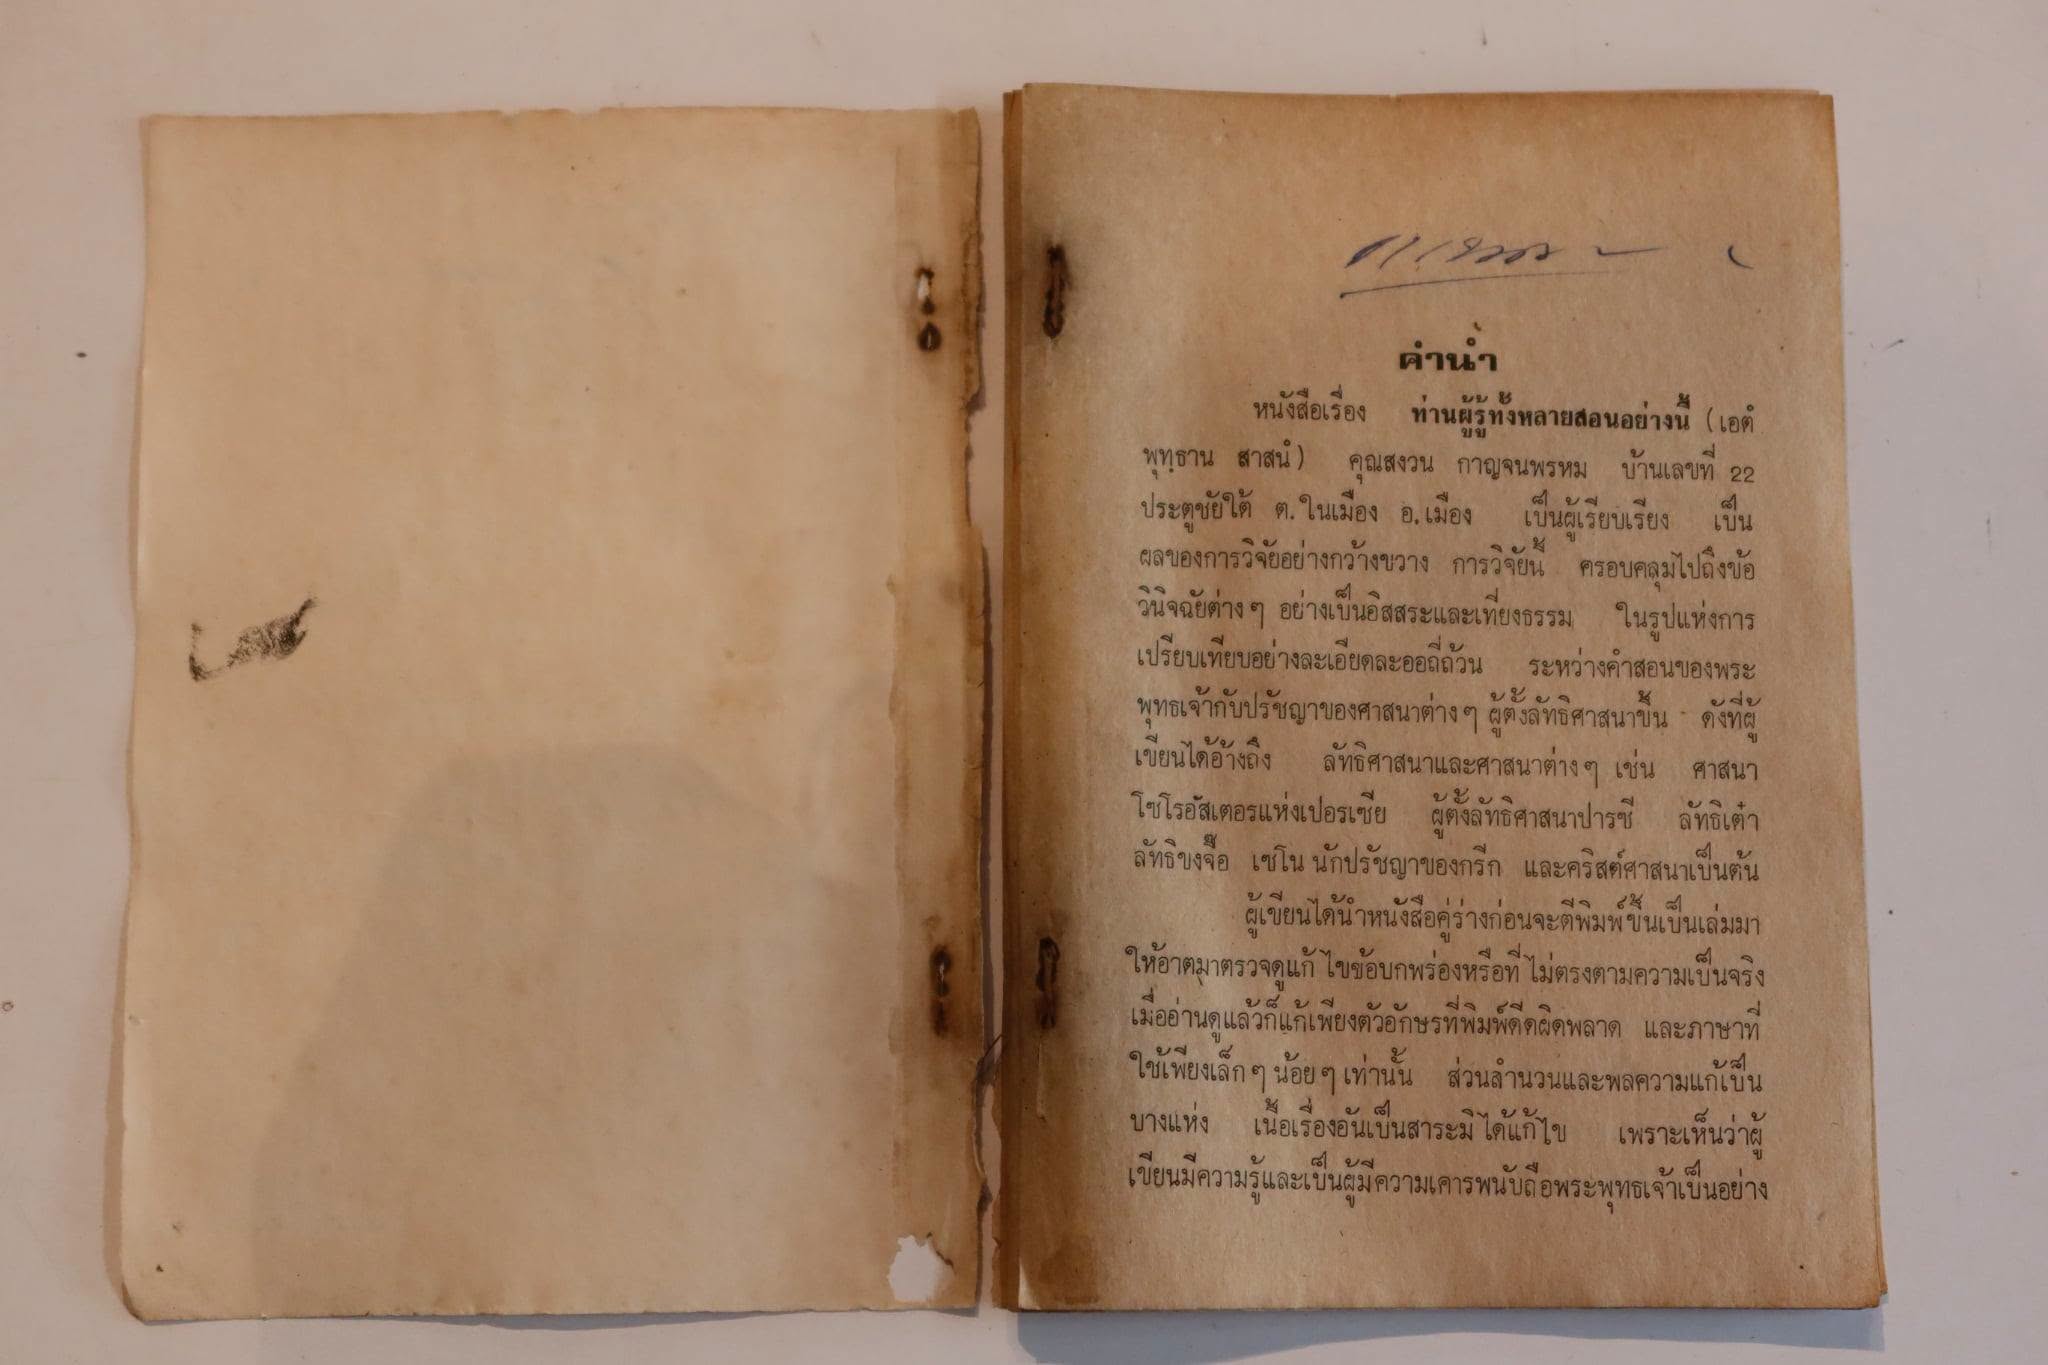 คำนำ
หนังสือเรื่อง ท่านผู้รู้ทั้งหลายสอนอย่างนี้ (เอตํ
พุทฺธาน สาสนํ) คุณสงวน กาญจนพรหม บ้านเลขที่ 22
ประตูชัยใต้ ต. ในเมือง อ. เมือง เป็นผู้เรียบเรียง เป็น
ผลของการวิจัยอย่างกว้างขวาง การวิจัยนี้ ครอบคลุมไปถึงข้อ
วินิจฉัยต่าง ๆ อย่างเป็นอิสสระและเที่ยงธรรม ในรูปแห่งการ
เปรียบเทียบอย่างละเอียดละออถี่ถ้วน ระหว่างคำสอนของพระ
พุทธเจ้ากับปรัชญาของศาสนาต่าง ๆ ผู้ตั้งลัทธิศาสนาขึ้น ดังที่ผู้
เขียนได้อ้างถึง ลัทธิศาสนาและศาสนาต่าง ๆ เช่น ศาสนา
โซโรอัสเตอรแห่งเปอรเซีย ผู้ตั้งลัทธิศาสนาปารซี ลัทธิเต๋า
ลัทธิขงจื๊อ เซโน นักปรัชญาของกรีก และคริสต์ศาสนาเป็นต้น
ผู้เขียนได้นำหนังสือคู่ร่างก่อนจะตีพิมพ์ขึ้นเป็นเล่มมา
ให้อาตมาตรวจดูแก้ไขข้อบกพร่องหรือที่ไม่ตรงตามความเป็นจริง
เมื่ออ่านดูแล้วก็แก้เพียงตัวอักษรที่พิมพ์ดีดผิดพลาด และภาษาที่
ใช้เพียงเล็ก ๆ น้อย ๆ เท่านั้น ส่วนสำนวนและพลความแก้เป็น
บางแห่ง เนื้อเรื่องอันเป็นสาระมิได้แก้ไข เพราะเห็นว่าผู้
เขียนมีความรู้และเป็นผู้มีความเคารพนับถือพระพุทธเจ้าเป็นอย่าง